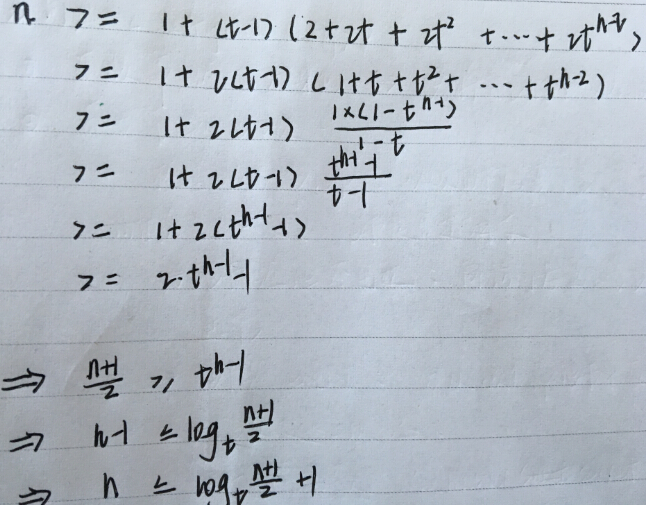 n >= 1+ (t-1) (2+2t + 2t² +⋯+ 2t^{h-2})
>= 1+ 2(t-1) (1+t+t²+ ⋯+t^{h-2})
>= 1+ 2(t-1) \frac{1×(1-t^{h-1})}{1-t}
>= 1+ 2(t-1) \frac{t^{h-1}-1}{t-1}
>= 1+ 2(t^{h-1}-1)
>= 2·t^{h-1}-1
⇒ \frac{n+1}{2} ≥ t^{h-1}
⇒ h-1 ≤ log_t \frac{n+1}{2}
⇒ h ≤ log_t \frac{n+1}{2} +1